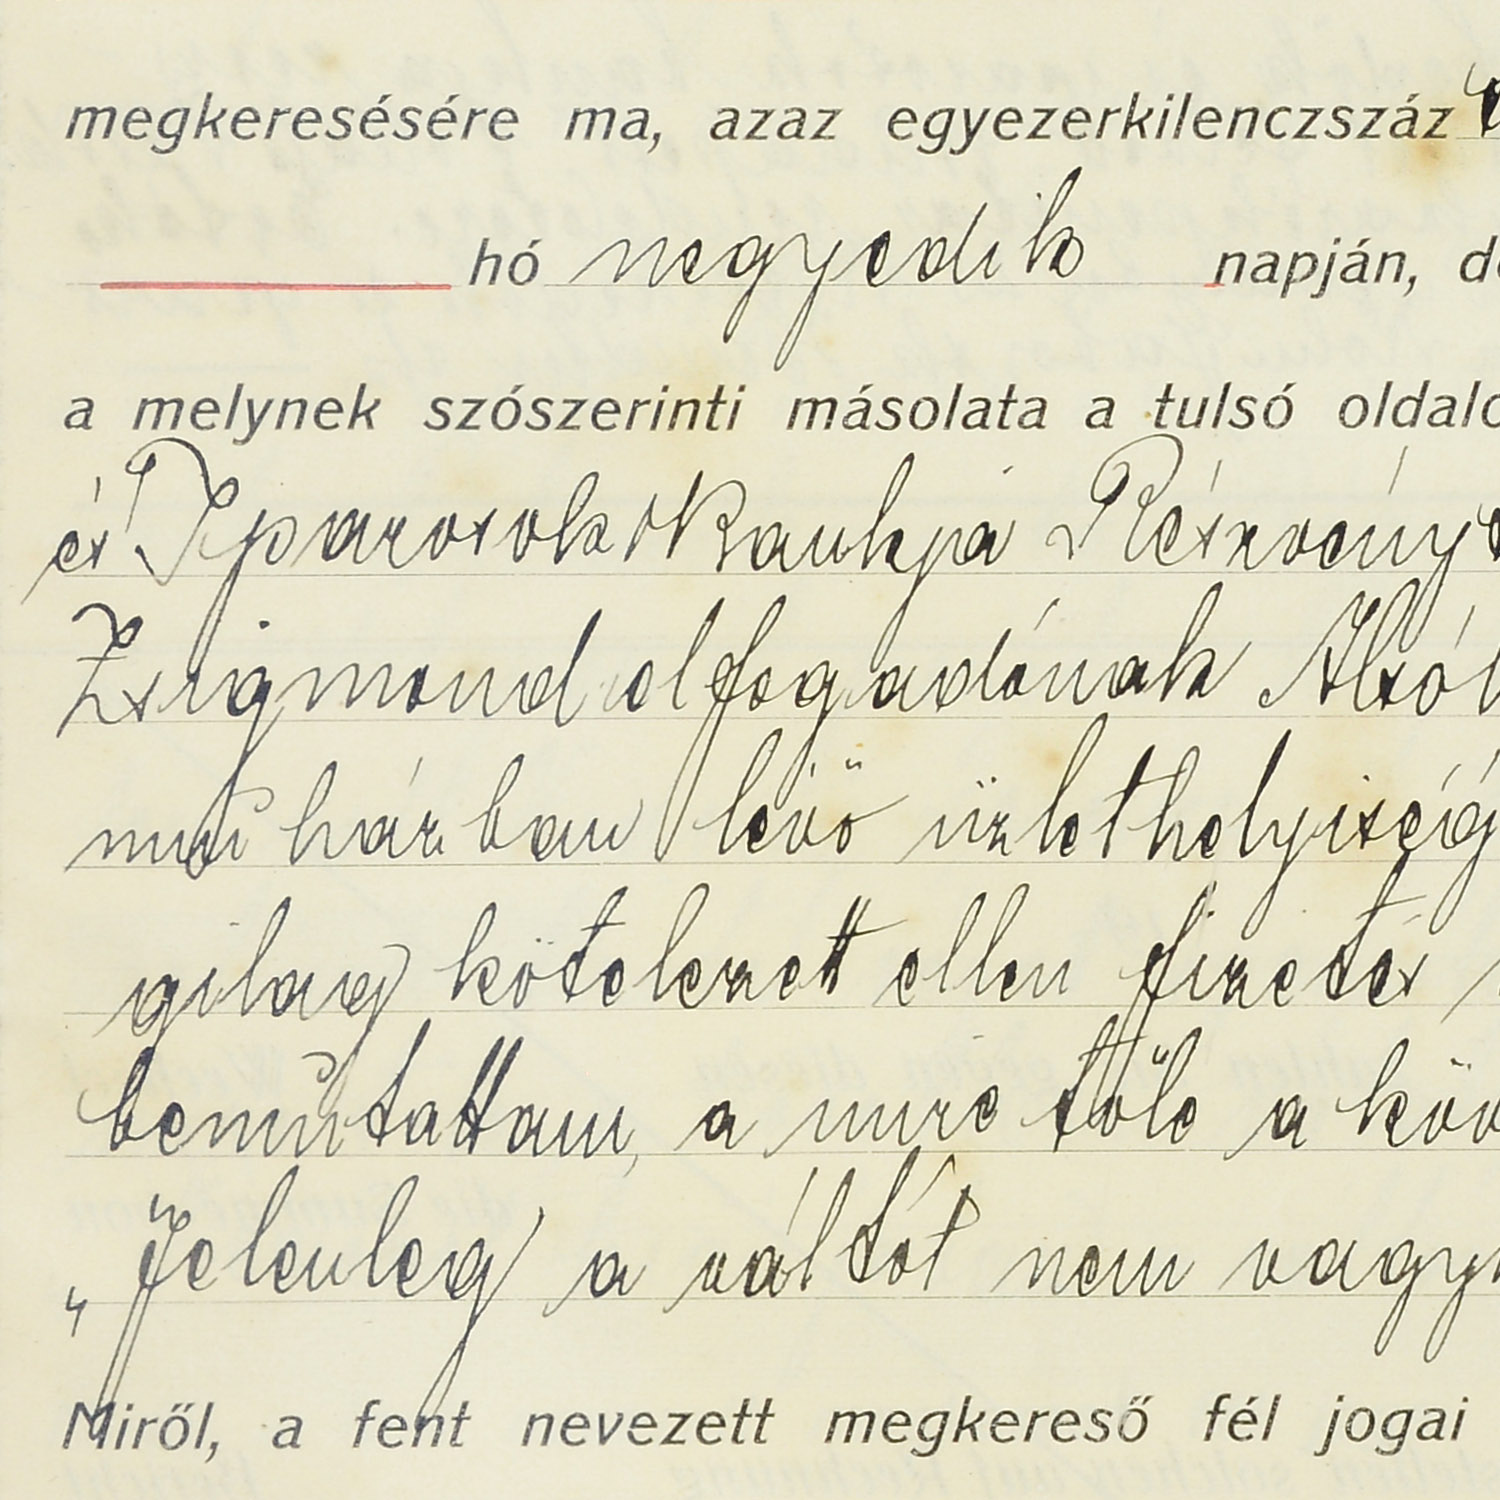 megkeresésére ma, azaz egyezerkilenczszáz
hó negyedik napján, de
a melynek szószerinti másolata a tulsó oldalo
és Iparosok Bankja Részvényt
Zsigmond elfogadónak Alsól
házban lévő üzlethelyiség
gilag kötelezett ellen fizetés
bemutattam, a mire tőle a köv
„Jelenleg a váltót nem vagy
Miről, a fent nevezett megkereső fél jogai